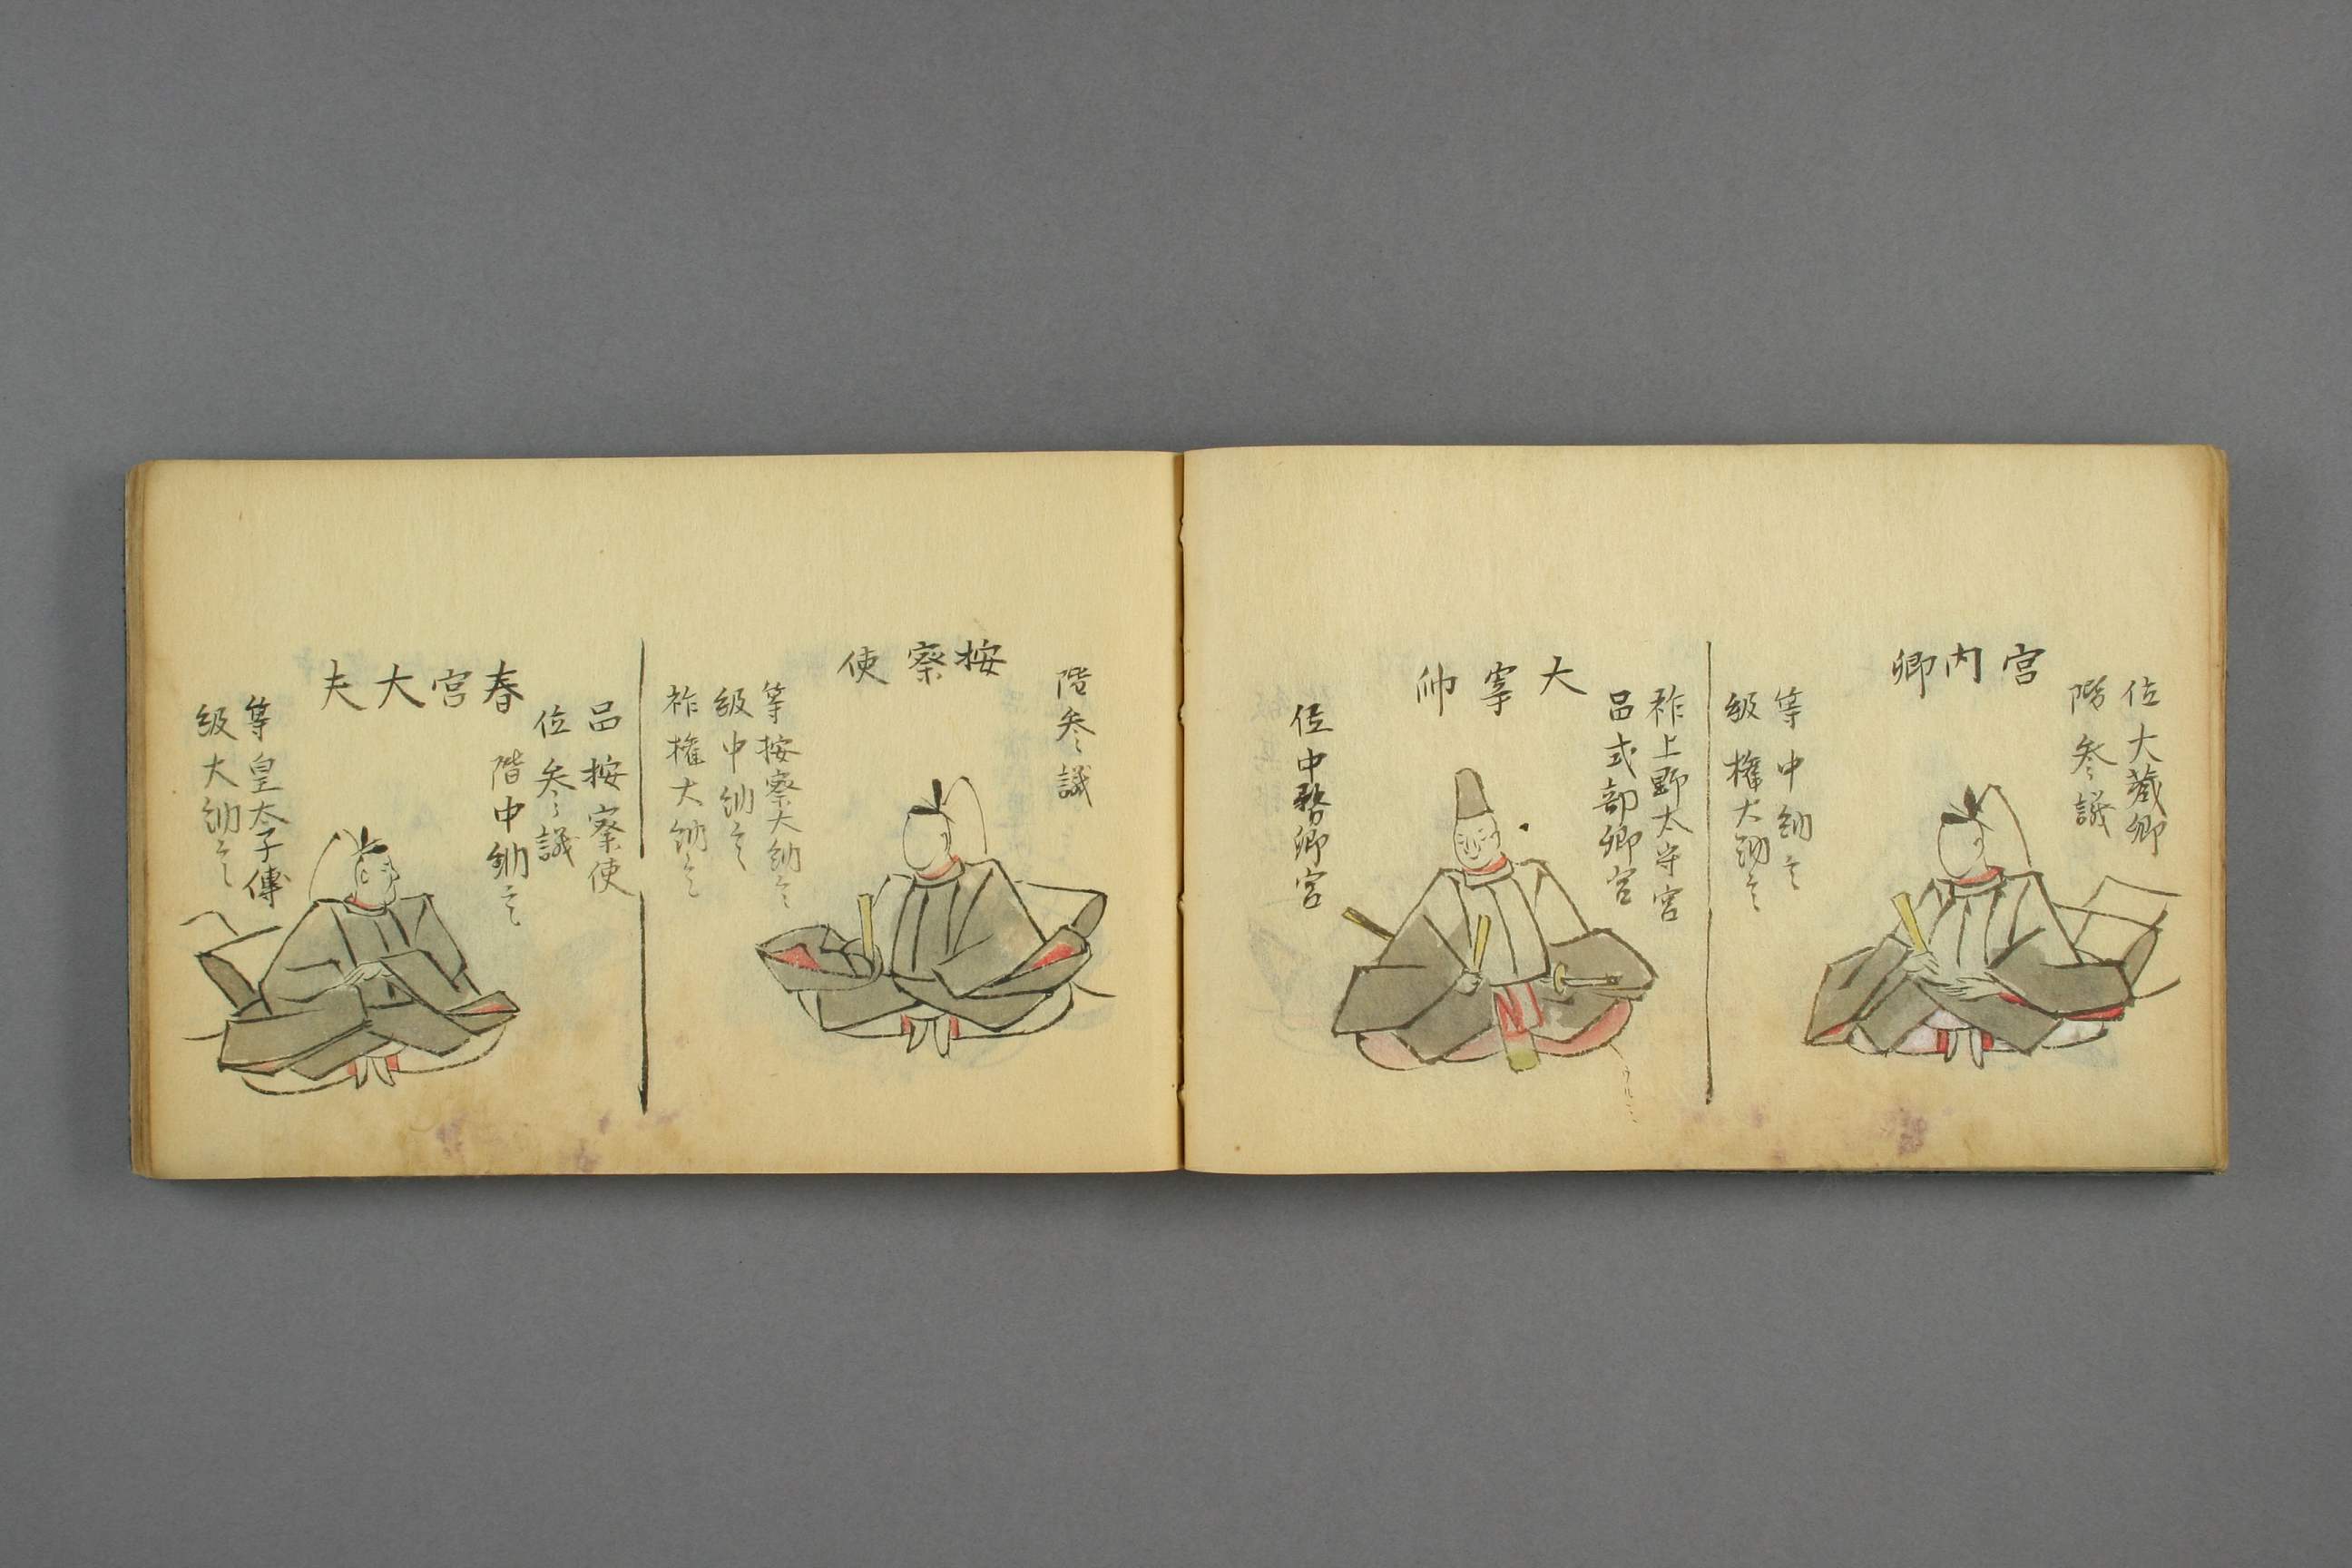 宮内卿
位大蔵卿
階参議
等中納言
級権大納言
大宰帥
祚上野太守宮
品式部卿宮
位中務卿宮
按察使
階参議
等按察大納言
級中納言
祚権大納言
春宮大夫
品按察使
位参議
階中納言
等皇太子傳
級大納言